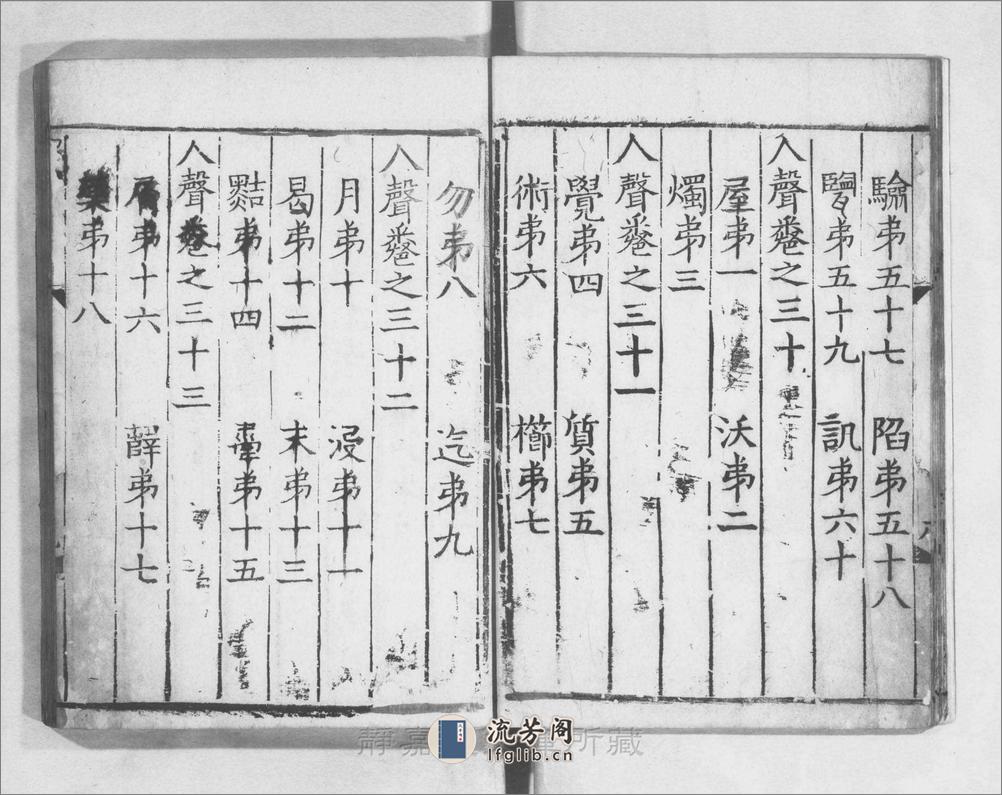 驗弟五十七 陷弟五十八
弟五十九 訉弟六十
入聲卷之三十
屋弟一 沃弟二
燭弟三
入聲卷之三十一
覺弟四 質弟五
術弟六 櫛弟七
勿弟八 迄弟九
入聲卷之三十二
月弟十 沒弟十一
曷弟十二 末弟十三
黠弟十四 舝弟十五
入聲卷之三十三
屑弟十六 薛弟十七
藥弟十八
靜嘉 所藏
流芳阁
lfglib.cn